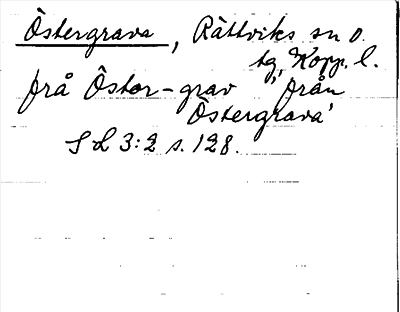 Östergrava, Rättviks sn o.
tg, Kopp. l.
frå Ôstor-grav 'från
Östergrava'
S L 3:2 s. 128.